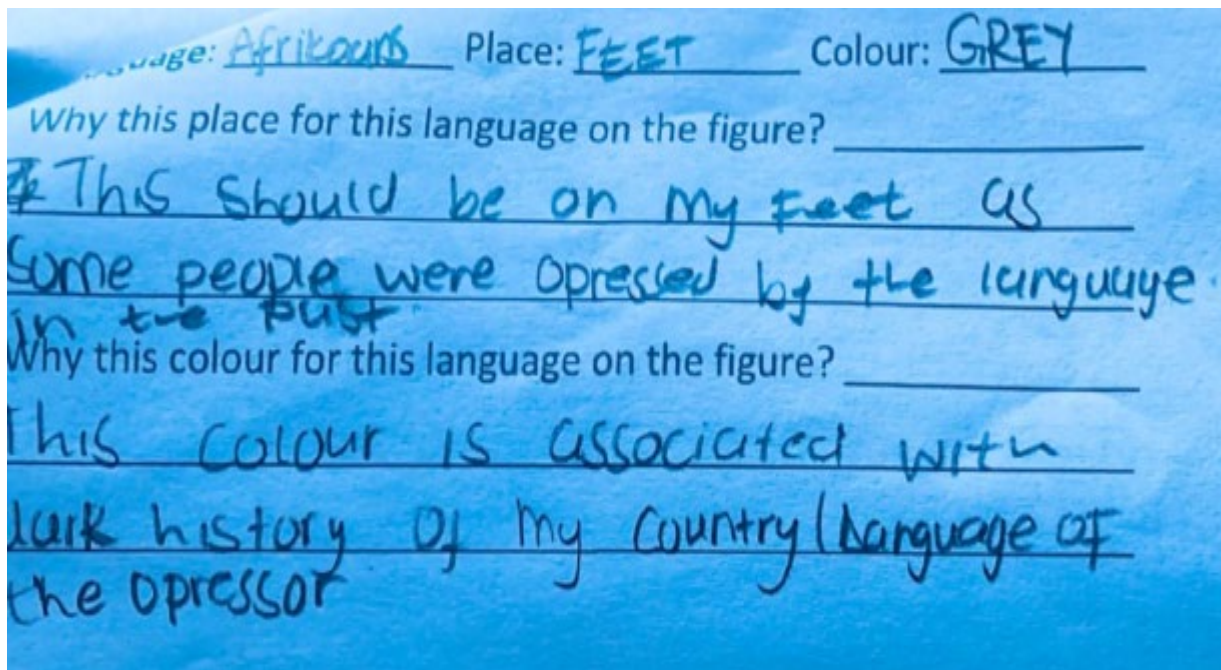 guage: Afrikaans Place: FEET Colour: GREY
Why this place for this language on the figure?
This should be on my Feet as
some people were opressed by the language
in the past.
Why this colour for this language on the figure?
This colour is associated with
dark history of my country (Language of
the opressor